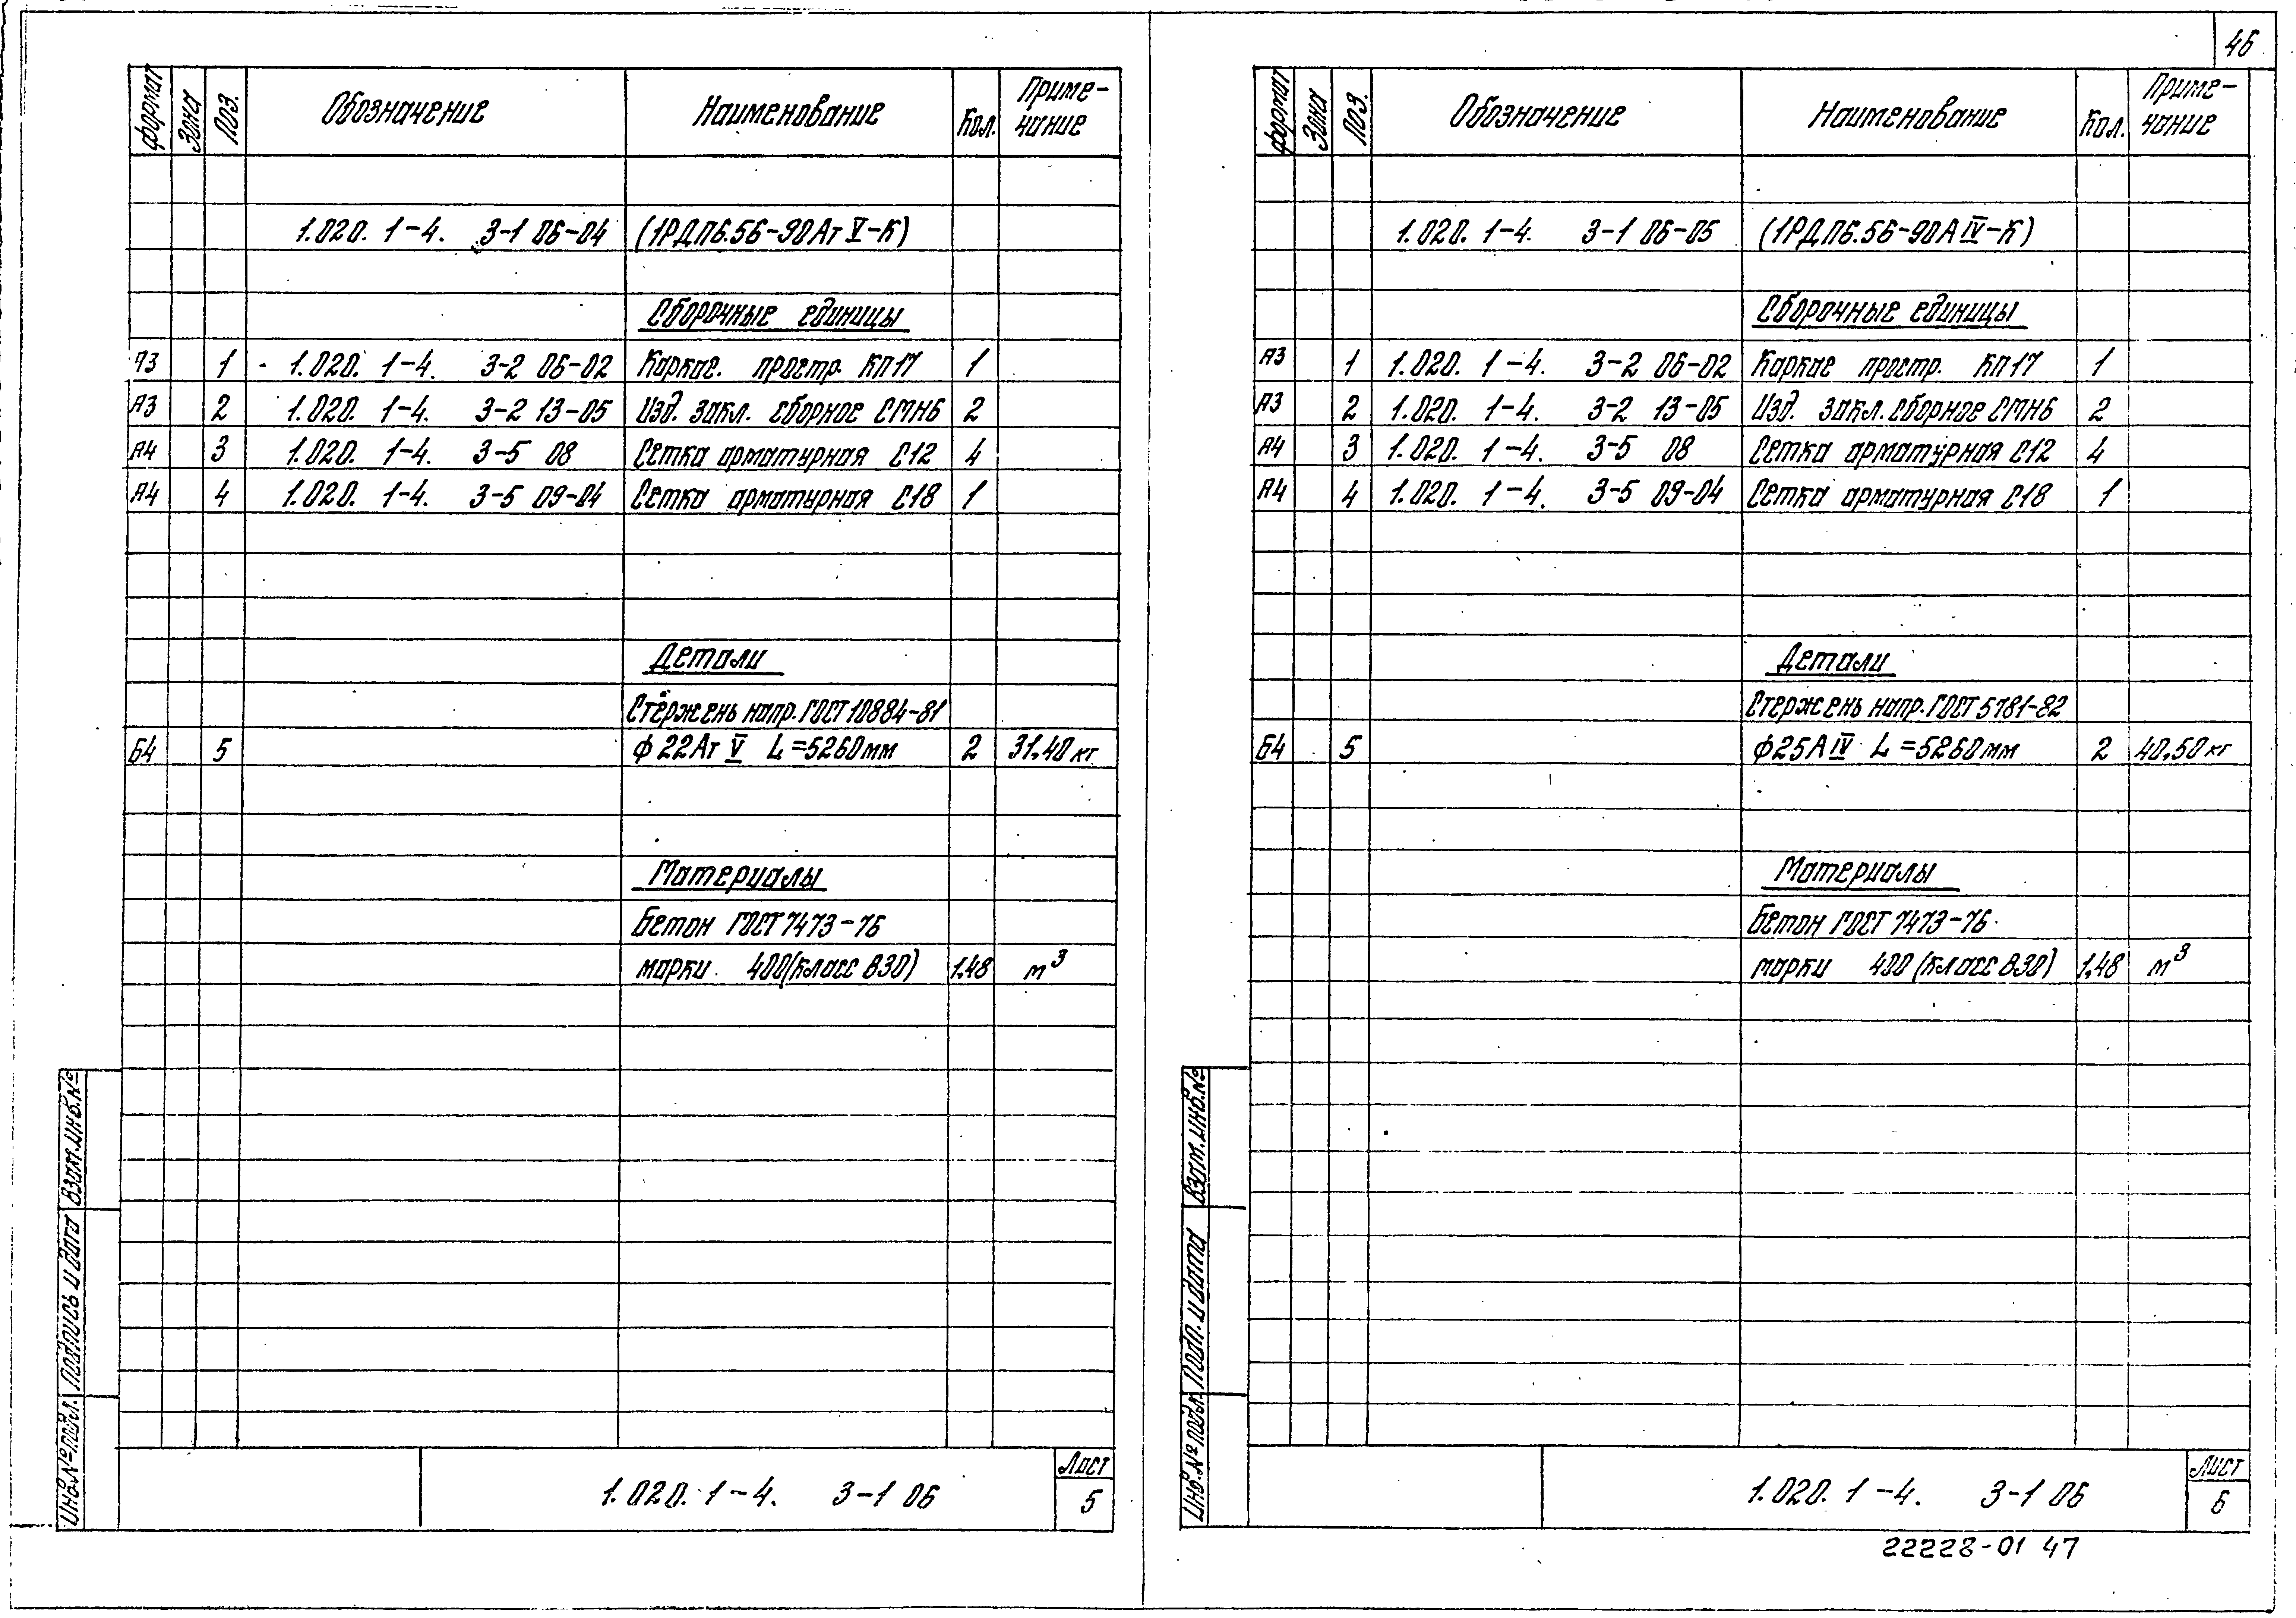 46
формат Зона Поз. Обозначение Наименование Кол. Приме-
чание
1.020.1-4. 3-1 06-04 (1РДП6.56-90АтV-К)
Сборочные единицы
А3 1 1.020.1-4. 3-2 06-02 Каркас простр. КП17 1
А3 2 1.020.1-4. 3-2 13-05 Изд. закл. сборное СМН6 2
А4 3 1.020.1-4. 3-5 08 Сетка арматурная С12 4
А4 4 1.020.1-4. 3-5 09-04 Сетка арматурная С18 1
Детали
Стержень напр. ГОСТ 10884-81
Б4 5 ф22АтV L=5260мм 2 31,40кг
Материалы
Бетон ГОСТ 7473-76
марки 400(класс В30) 1,48 м³
Взам.инв.№
Подпись и дата
Инв.№подл.
1.020.1-4. 3-1 06
Лист
5
формат Зона Поз. Обозначение Наименование Кол. Приме-
чание
1.020.1-4. 3-1 06-05 (1РДП6.56-90АIV-К)
Сборочные единицы
А3 1 1.020.1-4. 3-2 06-02 Каркас простр. КП17 1
А3 2 1.020.1-4. 3-2 13-05 Изд. закл. сборное СМН6 2
А4 3 1.020.1-4. 3-5 08 Сетка арматурная С12 4
А4 4 1.020.1-4. 3-5 09-04 Сетка арматурная С18 1
Детали
Стержень напр. ГОСТ 5781-82
Б4 5 ф25АIV L=5260мм 2 40,50кг
Материалы
Бетон ГОСТ 7473-76
марки 400 (класс В30) 1,48 м³
Взам.инв.№
Подп. и дата
Инв.№подл.
1.020.1-4. 3-1 06
Лист
6
22228-01 47